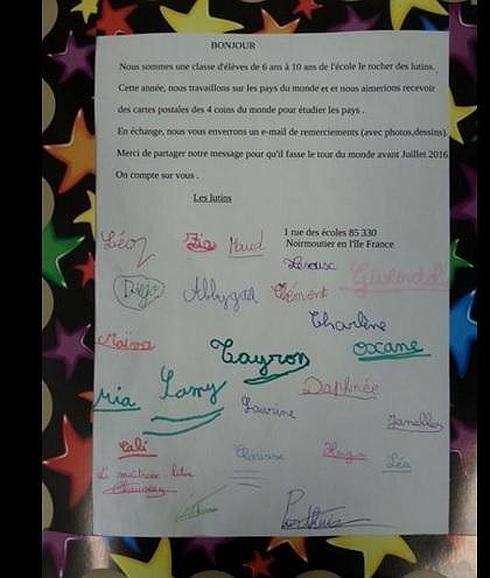 BONJOUR
Nous sommes une classe d'élèves de 6 ans à 10 ans de l'école le rocher des lutins.
Cette année, nous travaillons sur les pays du monde et et nous aimerions recevoir
des cartes postales des 4 coins du monde pour étudier les pays .
En échange, nous vous enverrons un e-mail de remerciements (avec photos,dessins).
Merci de partager notre message pour qu'il fasse le tour du monde avant Juillet 2016
On compte sur vous .
Les lutins
1 rue des écoles 85 330
Noirmoutier en l'île France
Léo Zia Maud
Diego Abbygaël Clément
Charlène
Maïwa Tayron Oxane
Lamy Daphnée
Laurine
Janelle
Cali Hugo Léa
La maîtresse